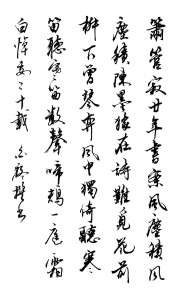 簫管寂廿年書案風塵積風
塵積陳墨猶在詩難覓花前
樹下曾琴弈風中獨倚聽寒
笛聽寒笛數聲啼鴂一庭霜
白悼妻二十載 書